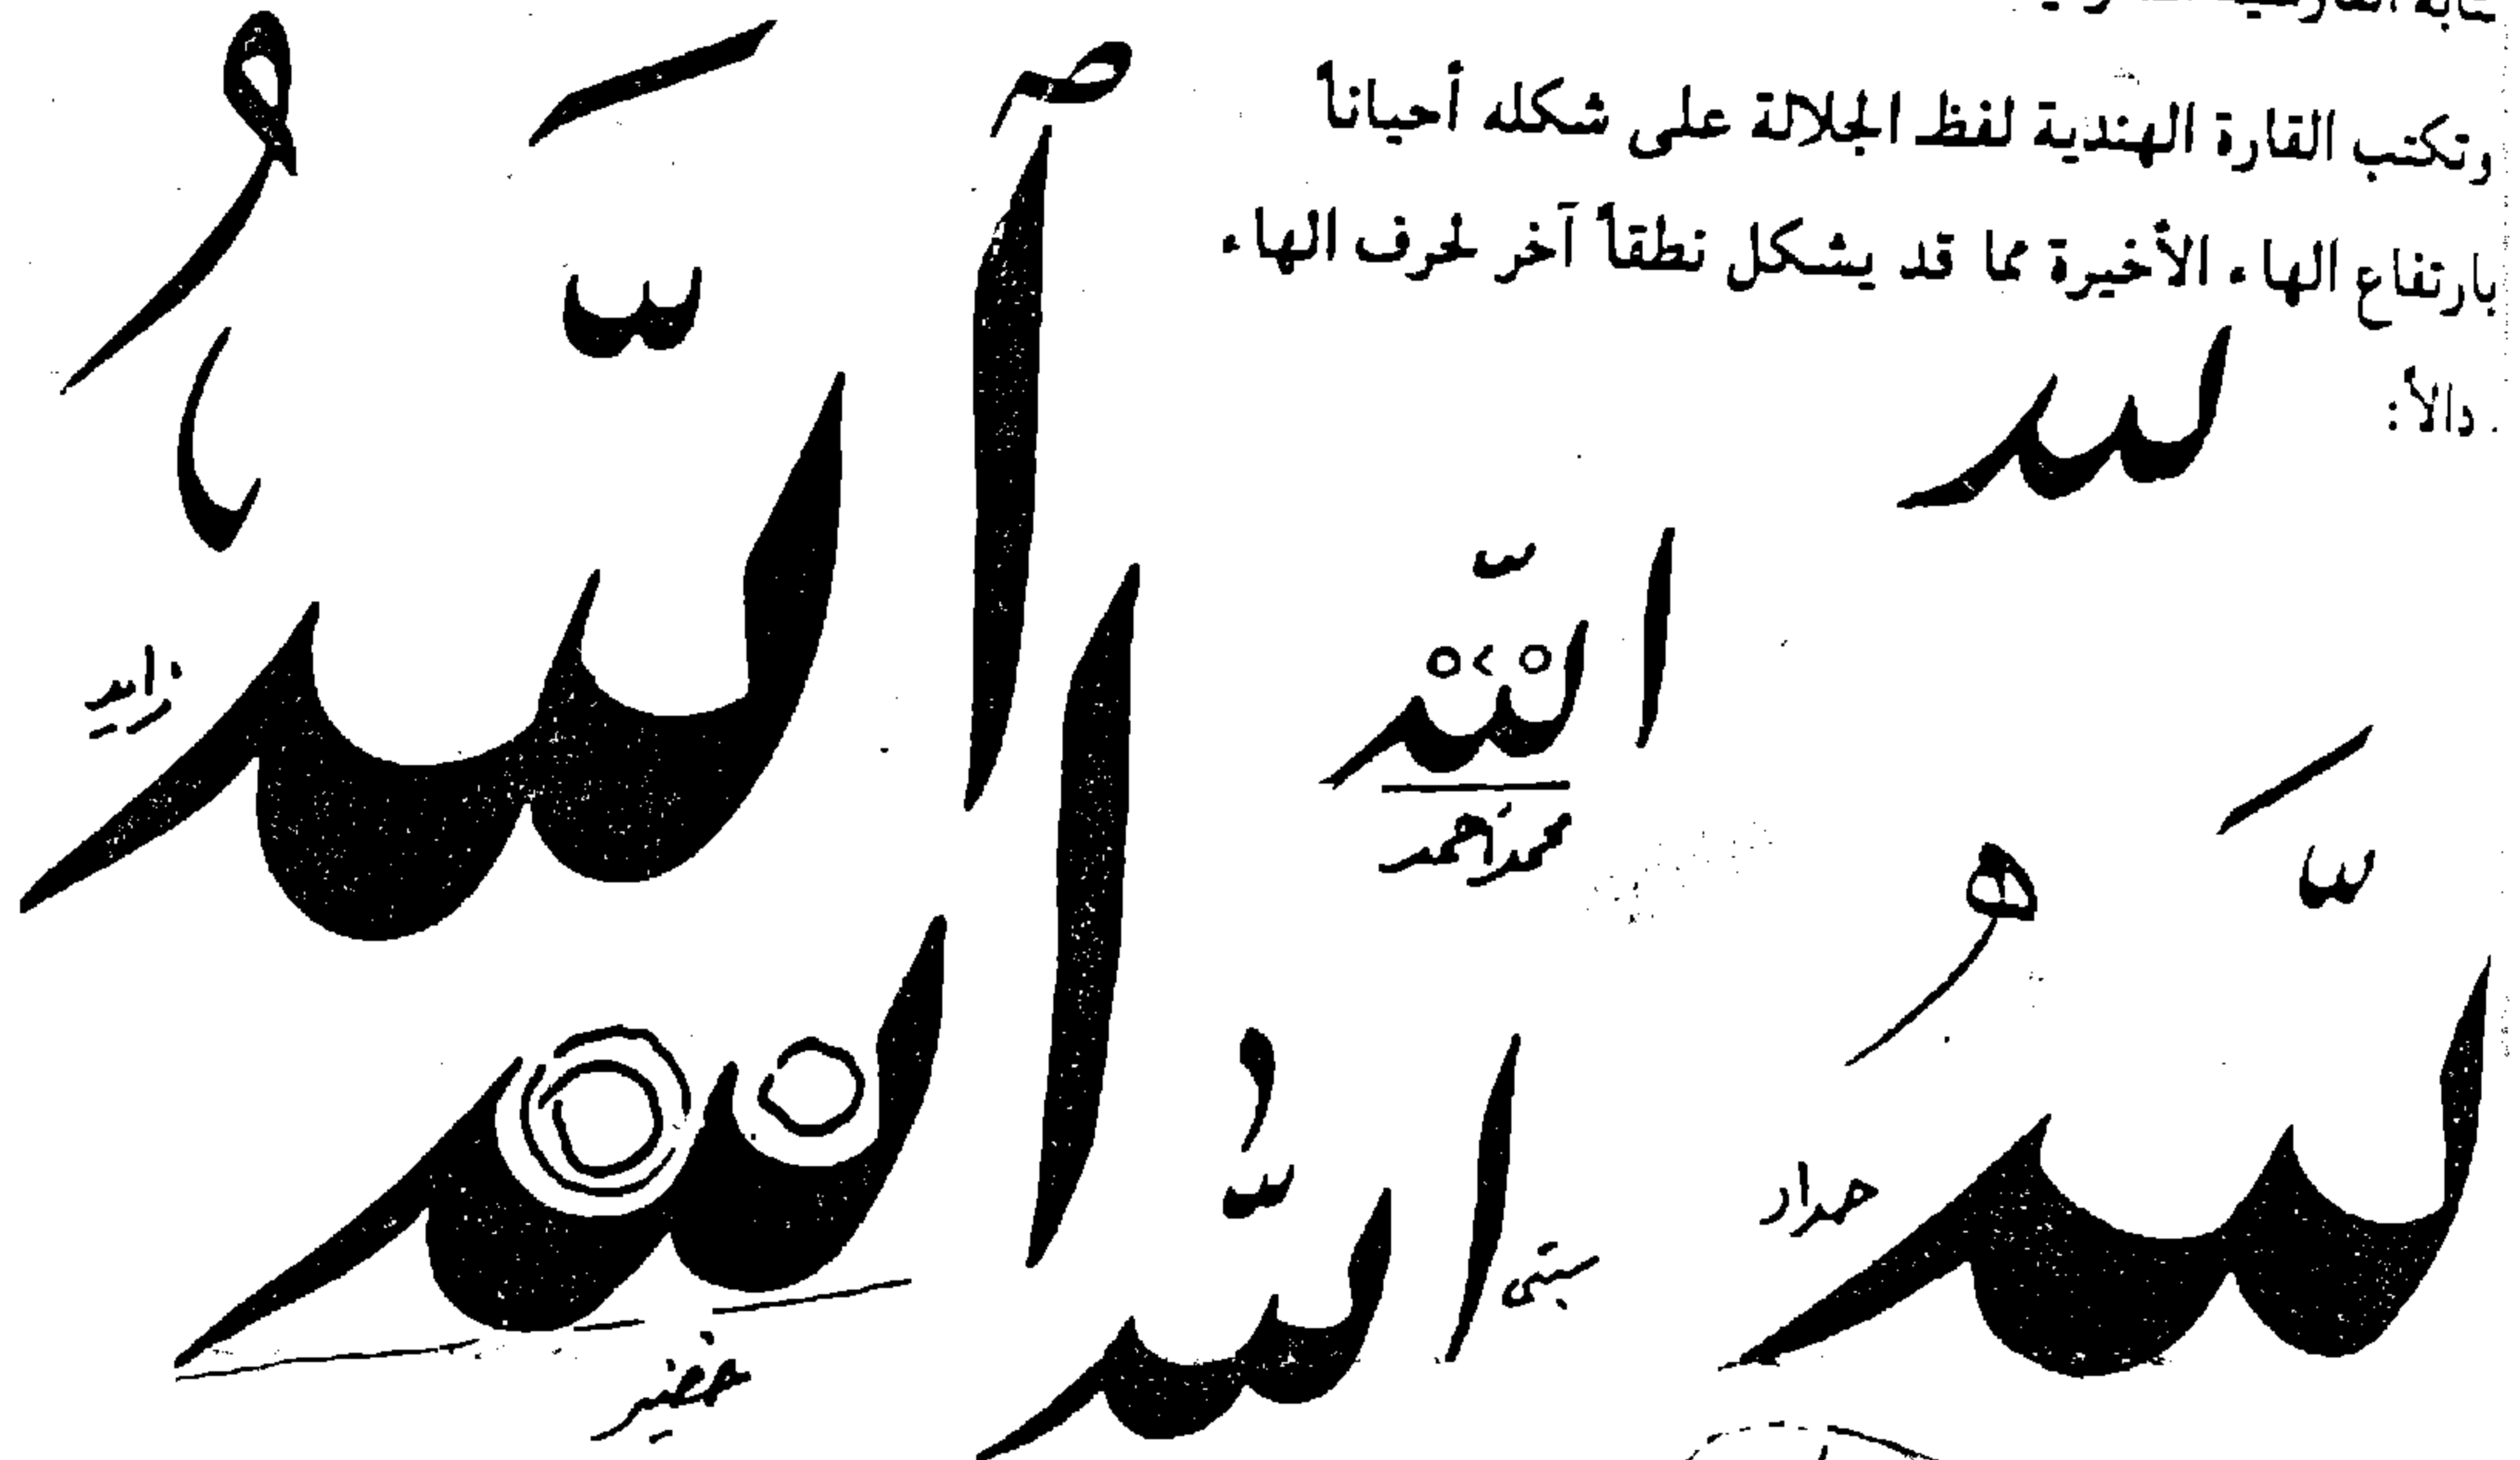 وتكتب القارة الهندية لفظ الجلالة على شكله أحياناً
بارتفاع الهاء الأخيرة مما قد يشكل نطقاً آخر لحرف الهاء
دالاً:
لله
الله
محمد أحمد
الله
زايد
الله
حداد
الله
خضير
الله